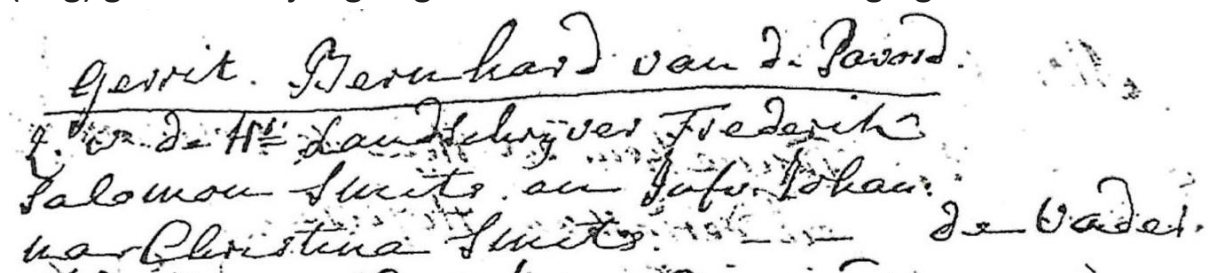 Gerrit. Bernhard van de Pavord.
g. v. de Hr. Landschrijver Frederik
Salomon Smits. en Jufv. Johan:
na Christina Smits. — — de Vader.